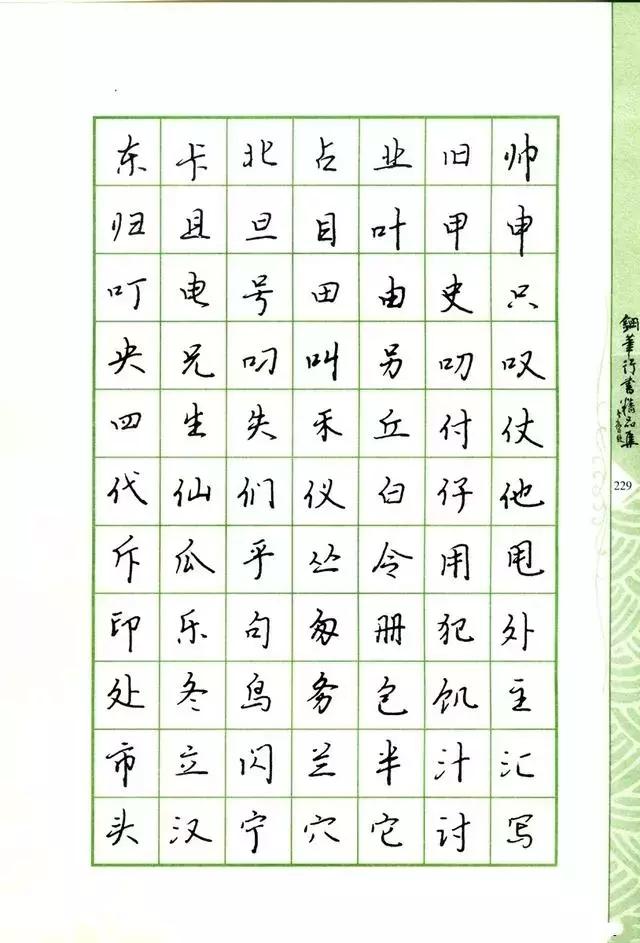 东卡北占业旧帅
归且旦目叶甲申
叮电号田由史只
央兄叼叫另叨叹
四生失禾丘付仗
代仙们仪白仔他
斥瓜乎丛令用甩
印乐句匆册犯外
处冬鸟务包饥主
市立闪兰半汁汇
头汉宁穴它讨写
鋼筆行書精品集
229